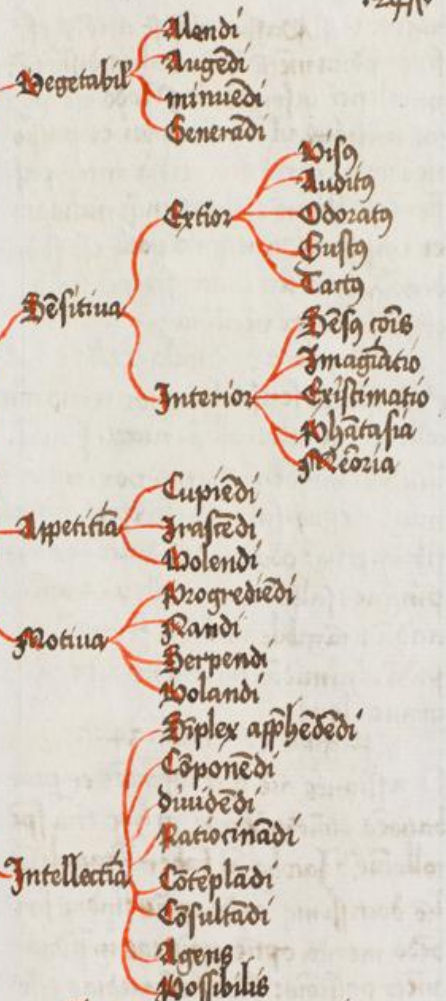 Vegetabil̄
Alendi
Augēdi
minuēdi
Generādi
Sēsitiua
Extior
Visꝯ
Auditꝯ
Odoratꝯ
Gustꝯ
Tactꝯ
Interior
Sēsꝯ cōis
Imagīatio
Existimatio
Phātasia
Mēoria
Appetitiā
Cupiēdi
Irascēdi
Volendi
Motiua
Progrediēdi
Nandi
Serpendi
Volandi
Intellectiā
Siplex apphēdēdi
Cōponēdi
diuidēdi
Ratiocinādi
Cōtēplādi
Cōsultādi
Agens
Possibilis